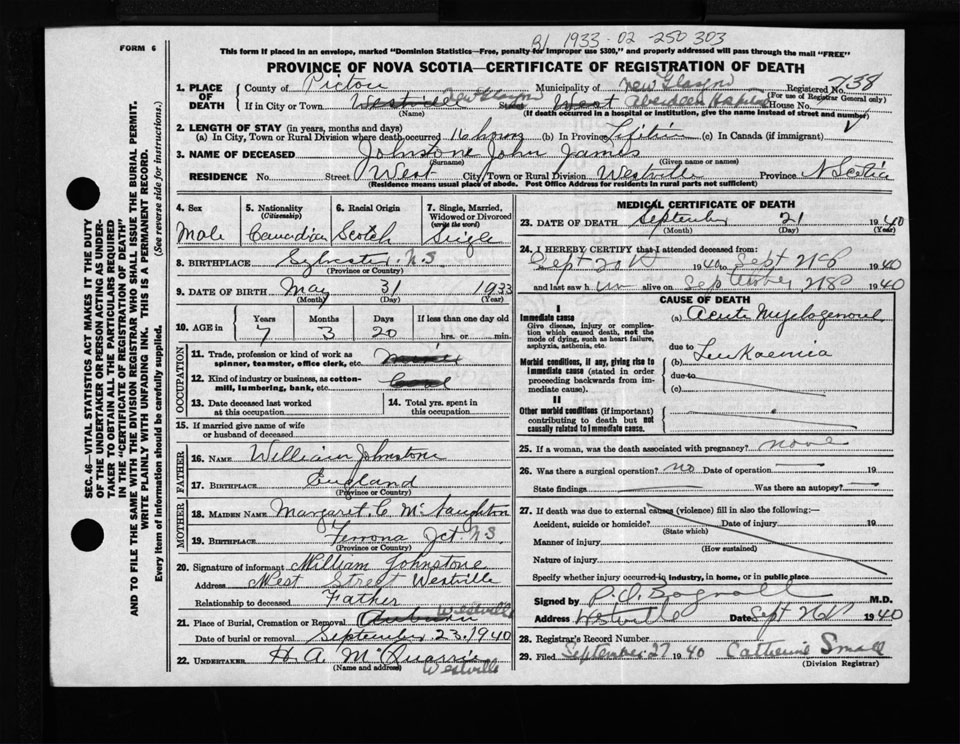 B/ 1933-02-250303
FORM 6
This form if placed in an envelope, marked "Dominion Statistics—Free, penalty for improper use $300," and properly addressed will pass through the mail "FREE"
PROVINCE OF NOVA SCOTIA—CERTIFICATE OF REGISTRATION OF DEATH
1. PLACE OF DEATH
County of Pictou Municipality of New Glasgow Registered No. 738
(For use of Registrar General only)
If in City or Town Westville New Glasgow Street West Aberdeen House No.
(Name) (If death occurred in a hospital or institution, give the name instead of street and number)
2. LENGTH OF STAY (in years, months and days)
(a) In City, Town or Rural Division where death occurred 16 hours (b) In Province Lifetime (c) In Canada (if immigrant)
3. NAME OF DECEASED Johnstone John James
(Surname) (Given name or names)
RESIDENCE No. Street West City, Town or Rural Division Westville Province N Scotia
(Residence means usual place of abode. Post Office Address for residents in rural parts not sufficient)
4. Sex Male
5. Nationality (Citizenship) Canadian
6. Racial Origin Scotch
7. Single, Married, Widowed or Divorced (write the word) Single
8. BIRTHPLACE Sylvester N.S.
(Province or Country)
9. DATE OF BIRTH May 31 1933
(Month) (Day) (Year)
10. AGE in Years Months Days If less than one day old
7 3 20 hrs. or min.
OCCUPATION
11. Trade, profession or kind of work as spinner, teamster, office clerk, etc.
12. Kind of industry or business, as cotton-mill, lumbering, bank, etc.
13. Date deceased last worked at this occupation
14. Total yrs. spent in this occupation
15. If married give name of wife or husband of deceased
FATHER
16. NAME William Johnstone
17. BIRTHPLACE England
(Province or Country)
MOTHER
18. MAIDEN NAME Margaret C McNaughton
19. BIRTHPLACE Ferrona Jct N.S.
(Province or Country)
20. Signature of informant William Johnstone
Address West Street Westville
Relationship to deceased Father
21. Place of Burial, Cremation or Removal Auburn Westville
Date of burial or removal September 23, 1940
22. UNDERTAKER H A McQuarrie
(Name and address) Westville
MEDICAL CERTIFICATE OF DEATH
23. DATE OF DEATH September 21 1940
(Month) (Day) (Year)
24. I HEREBY CERTIFY that I attended deceased from:
Sept 20 1940 to Sept 21 1940
and last saw him alive on September 21 1940
CAUSE OF DEATH
I
Immediate cause
Give disease, injury or complication which caused death, not the mode of dying, such as heart failure, asphyxia, asthenia, etc.
(a) Acute Myelogenous
due to
Leukaemia
Morbid conditions, if any, giving rise to immediate cause (stated in order proceeding backwards from immediate cause).
(b)
due to
(c)
II
Other morbid conditions (if important) contributing to death but not causally related to immediate cause.
25. If a woman, was the death associated with pregnancy? none
26. Was there a surgical operation? no Date of operation 19
State findings Was there an autopsy?
27. If death was due to external causes (violence) fill in also the following:—
Accident, suicide or homicide? Date of injury 19
(State which)
Manner of injury
(How sustained)
Nature of injury
Specify whether injury occurred in industry, in home, or in public place
Signed by M.D.
Address Westville Date Sept 1940
28. Registrar's Record Number
29. Filed September 27 1940 Catherine Small
(Division Registrar)
SEC. 46—VITAL STATISTICS ACT MAKES IT THE DUTY
OF THE UNDERTAKER OR PERSON ACTING AS UNDER-
TAKER TO OBTAIN ALL THE PARTICULARS REQUIRED
IN THE "CERTIFICATE OF REGISTRATION OF DEATH"
AND TO FILE THE SAME WITH THE DIVISION REGISTRAR WHO SHALL ISSUE THE BURIAL PERMIT.
WRITE PLAINLY WITH UNFADING INK. THIS IS A PERMANENT RECORD.
Every item of information should be carefully supplied. (See reverse side for instructions.)